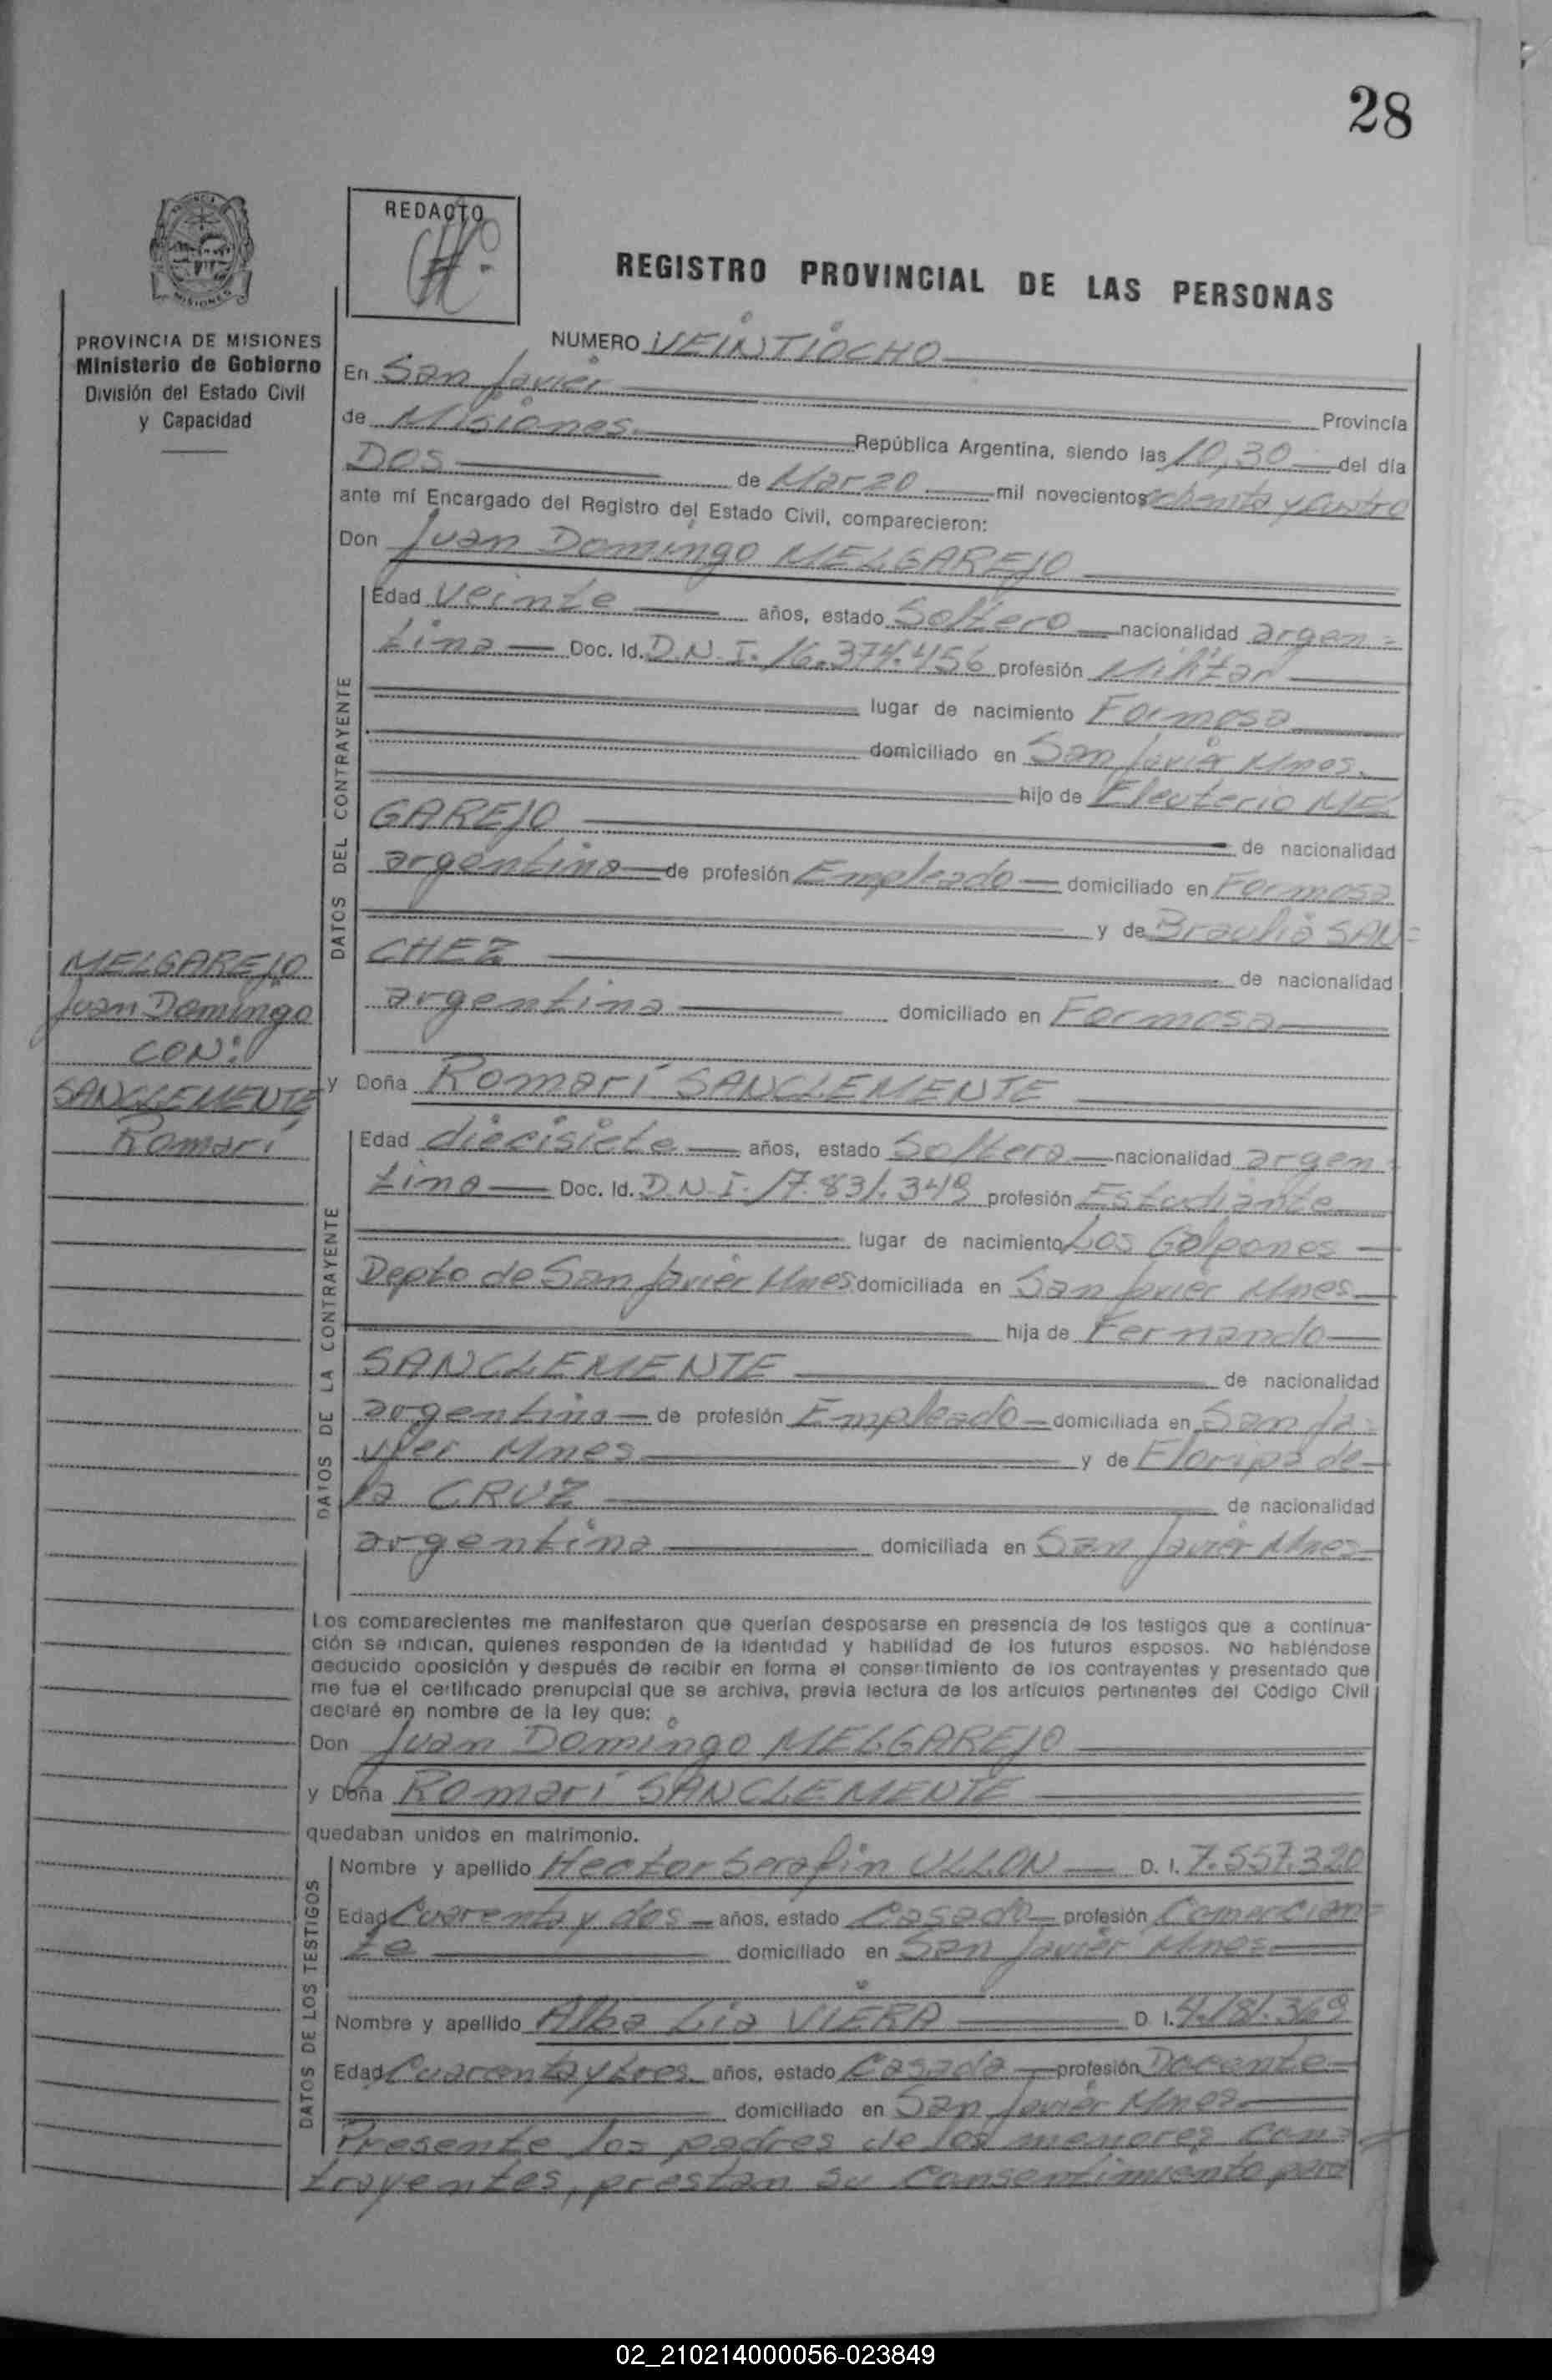 28
REDACTO
REGISTRO PROVINCIAL DE LAS PERSONAS
PROVINCIA DE MISIONES
Ministerio de Gobierno
División del Estado Civil
y Capacidad
NUMERO VEINTIOCHO
En San Javier Provincia
de Misiones República Argentina, siendo las 10,30 del día
Dos de Marzo mil novecientos ochenta y cuatro
ante mí Encargado del Registro del Estado Civil, comparecieron:
Don Juan Domingo MELGAREJO
DATOS DEL CONTRAYENTE
Edad veinte años, estado Soltero nacionalidad argen=
tina Doc. Id. D.N.I. 16.374.456 profesión Militar
lugar de nacimiento Formosa
domiciliado en San Javier Mnes.
hijo de Eleuterio MEL
GAREJO de nacionalidad
argentina de profesión Empleado domiciliado en Formosa
y de Braulia SAN=
CHEZ de nacionalidad
argentina domiciliado en Formosa
MELGAREJO
Juan Domingo
CON:
SANCLEMENTE
Romarí
y Doña Romarí SANCLEMENTE
DATOS DE LA CONTRAYENTE
Edad diecisiete años, estado Soltera nacionalidad argen=
tina Doc. Id. D.N.I. 17.831.349 profesión Estudiante
lugar de nacimiento Los Galpones
Depto de San Javier Mnes domiciliada en San Javier Mnes
hija de Fernando
SANCLEMENTE de nacionalidad
argentina de profesión Empleado domiciliada en San Ja=
vier Mnes y de Floripa de
la CRUZ de nacionalidad
argentina domiciliada en San Javier Mnes
Los comparecientes me manifestaron que querían desposarse en presencia de los testigos que a continua-
ción se indican, quienes responden de la identidad y habilidad de los futuros esposos. No habiéndose
deducido oposición y después de recibir en forma el consentimiento de los contrayentes y presentado que
me fue el certificado prenupcial que se archiva, previa lectura de los artículos pertinentes del Código Civil
declaré en nombre de la ley que:
Don Juan Domingo MELGAREJO
y Doña Romarí SANCLEMENTE
quedaban unidos en matrimonio.
DATOS DE LOS TESTIGOS
Nombre y apellido Hector Serafin ULLON D. I. 7.557.320
Edad Cuarenta y dos años, estado Casado profesión Comercian=
te domiciliado en San Javier Mnes
Nombre y apellido Alba Lia VIERA D. I. 4.181.369
Edad Cuarenta y tres años, estado Casada profesión Docente
domiciliado en San Javier Mnes
Presente los padres de los menores con=
trayentes, prestan su Consentimiento para
02_210214000056-023849